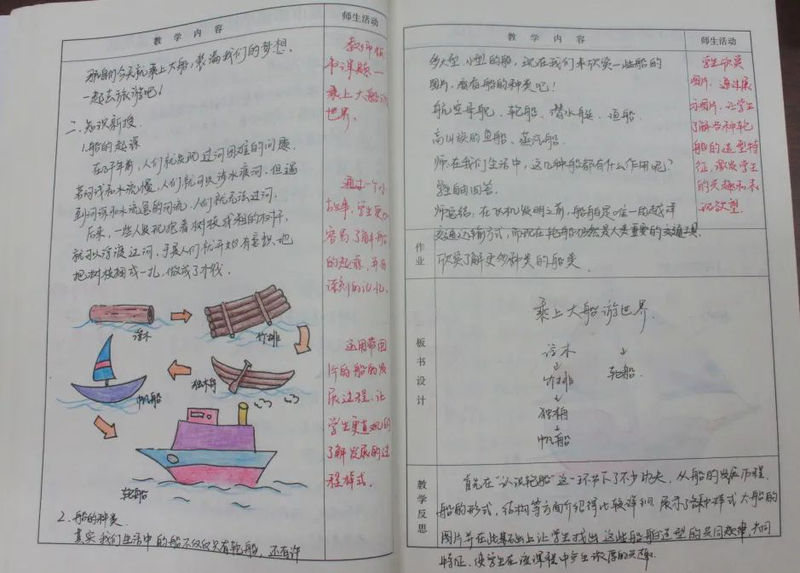 教学内容
师生活动
那我们今天就乘上大船,装满我们的梦想.
一起去旅游吧!
二.知识新授
1.船的起源
人们就发现过河困难的问题.
人们就可以涉水渡河.但遇
到河深和水流急的河流,人们就无法过河.
后来,一些人发现抱着树枝或粗的树干,
就可以浮渡过河.于是人们就开始有意识地
把树枝捆成一扎,做成了木筏
浮木
竹排
独木舟
帆船
轮船
2.船的种类
其实我们生活中的船不仅仅只有轮船,还有许
书课题—
乘上大船游
世界.
通过一个小
故事,学生更
容易了解船
的起源,并有
深刻的记忆.
运用带图
片的船的发
展过程,让
学生更直观的
了解发展的过
程样式.
教学内容
师生活动
多大型、小型的船,现在我们来欣赏一些船的
图片,看看船的种类吧!
航空母舰、轮船、潜水艇、渔船、
高山族的鱼船、蒸汽船.
师:在我们生活中,这几种船都有什么作用呢?
学生的回答.
师总结:在飞机发明之前,船舶是唯一的越洋
交通运输方式,而现在轮船仍然是人类重要的交通工具.
学生欣赏
图片,通过展
示图片,让学生
了解各种轮
船的造型特
征,激发学生
的兴趣和求
知欲望.
作业
欣赏了解更多种类的船类.
板书设计
乘上大船游世界.
浮木
竹排
轮船.
独木舟
帆船
教学反思
首先在“认识轮船”这一环节下了不少功夫,从船的发展历程,
船的形式,结构等方面介绍得比较详细.展示了各种样式大船的
图片并在此基础上让学生找出这些船舶造型的共同规律,共同
特征,使学生在该课程中产生浓厚的兴趣.